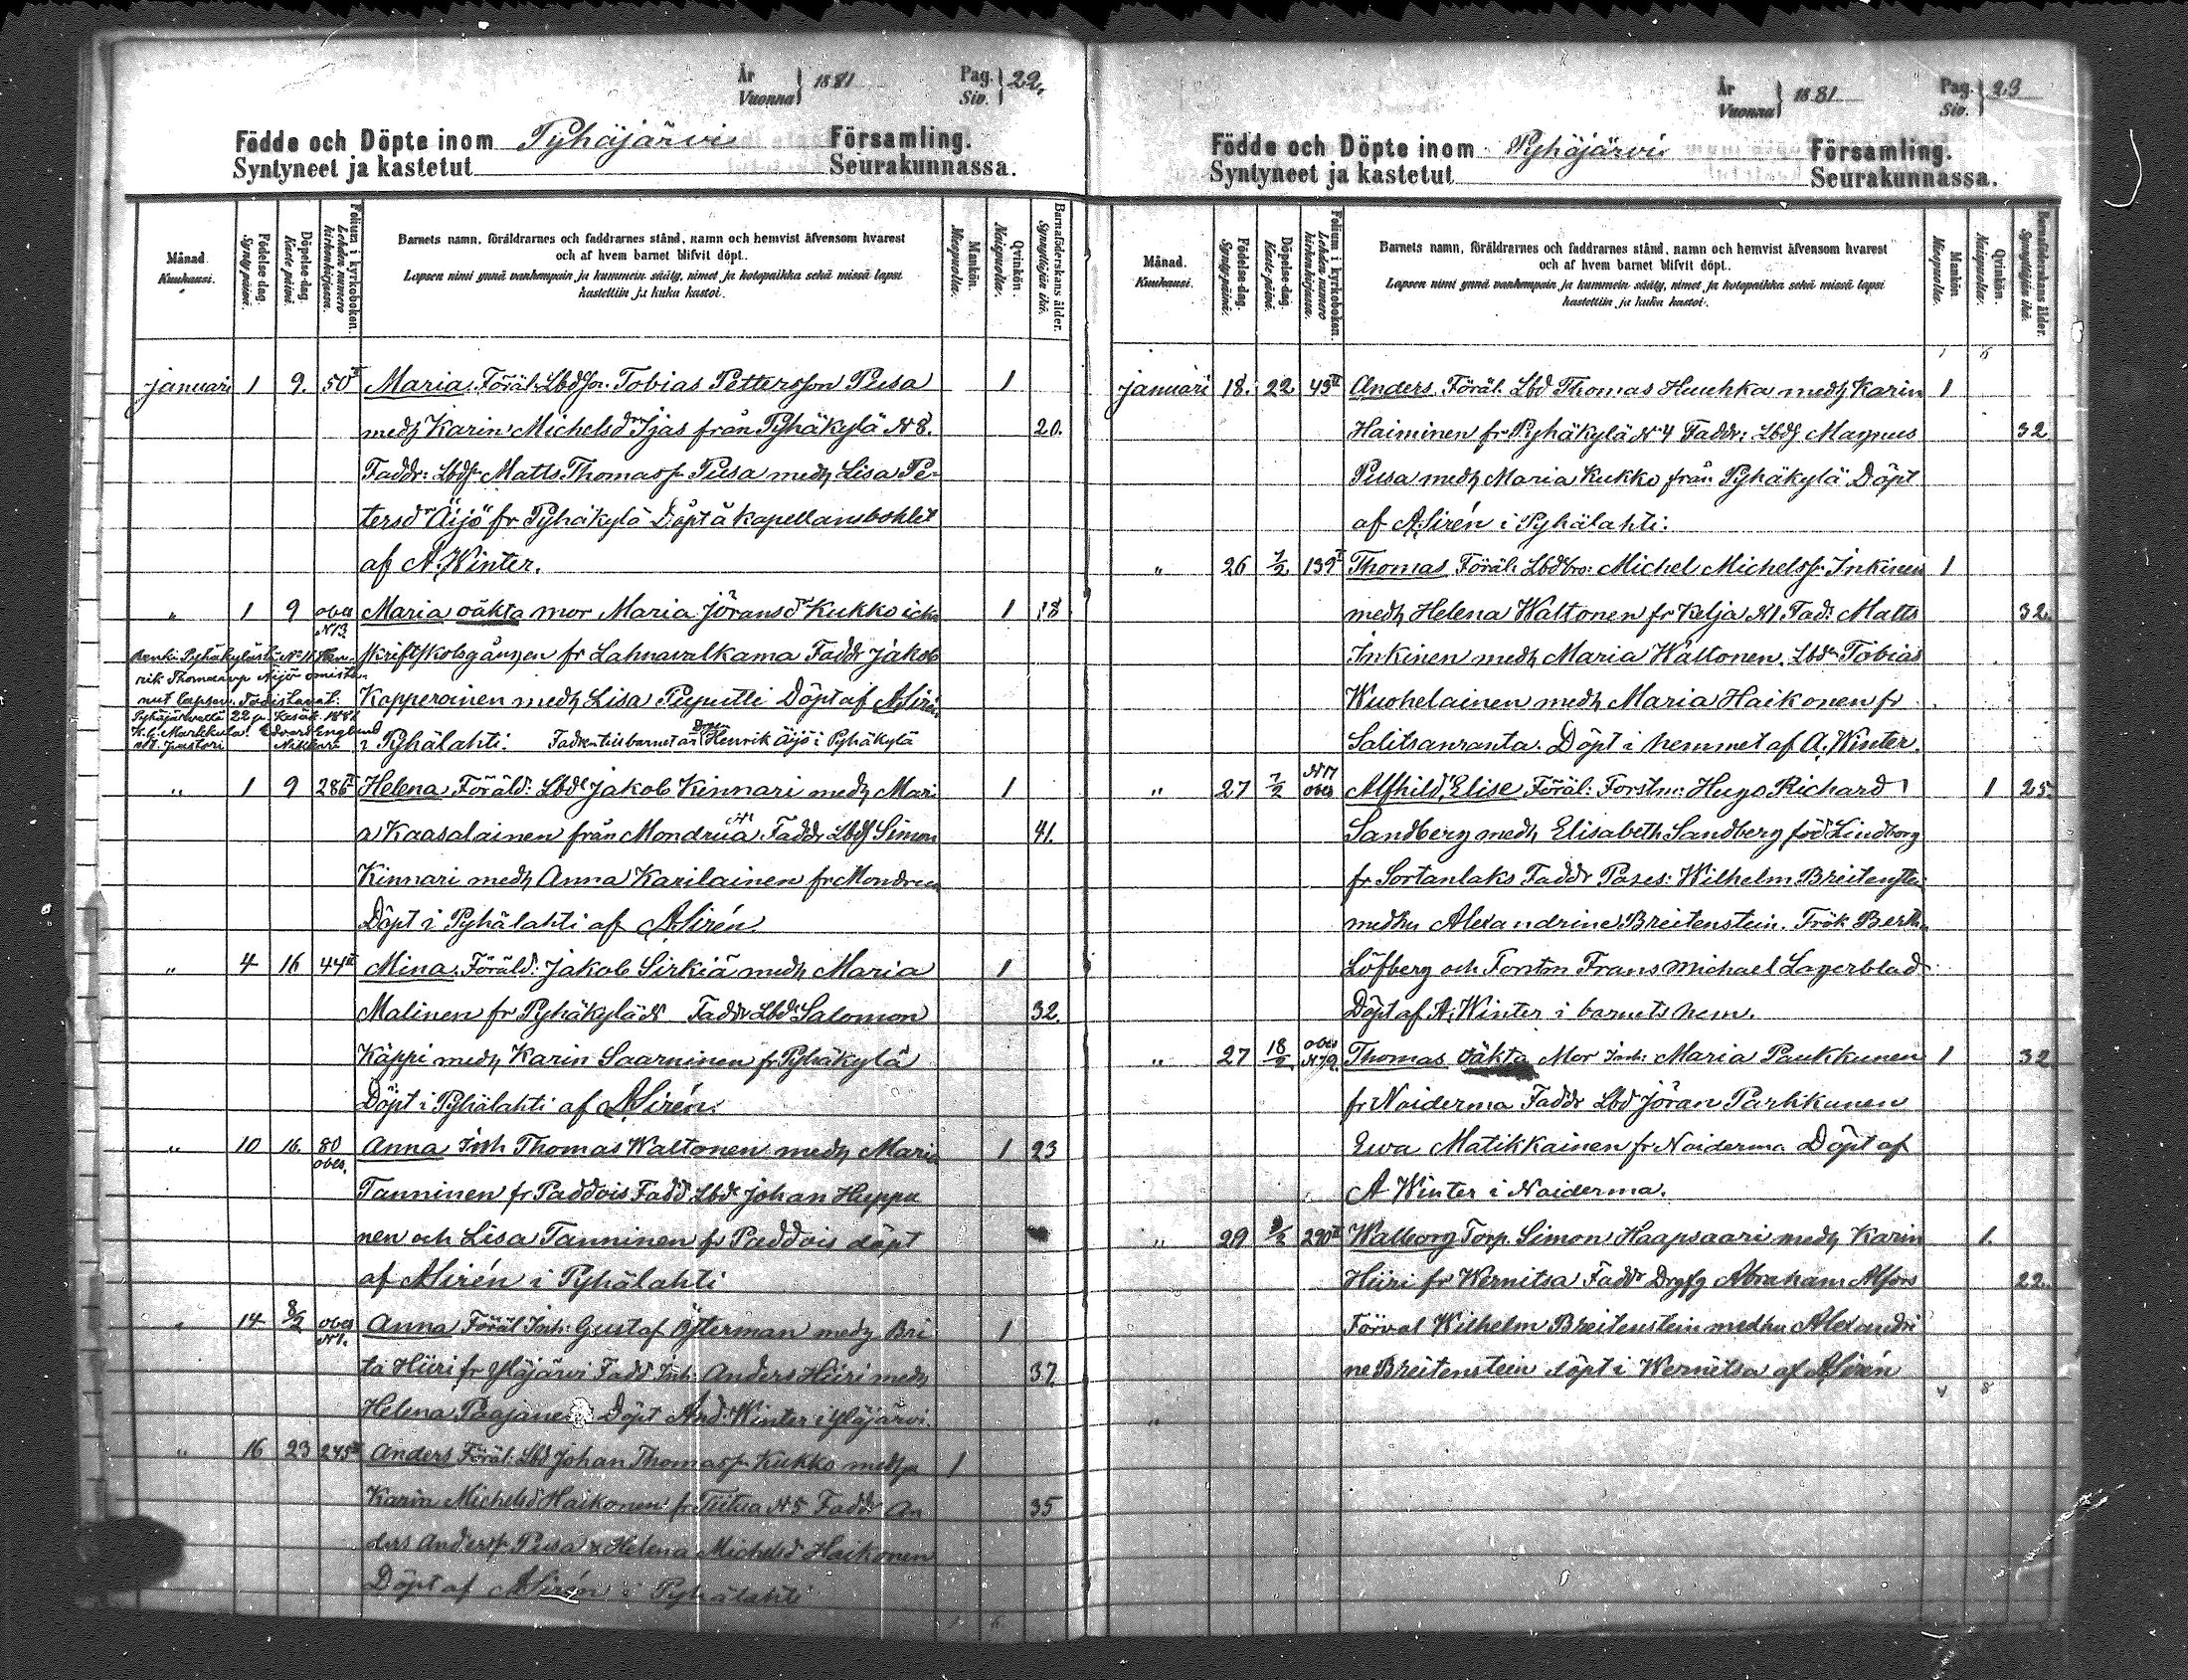 År
Vuonna } 1881
Pag.
Siv. } 22.
Födde och Döpte inom Pyhäjärvi Församling.
Syntyneet ja kastetut Seurakunnassa.
Månad. Kuukausi.
Födelse-dag. Synty-päinä.
Döpelse-dag. Kaste-päinä.
Folium i kyrkoboken. Lehden numero kirkonkirjassa.
Barnets namn, föräldrarnes och faddrarnes stånd, namn och hemvist äfvensom hvarest
och af hvem barnet blifvit döpt.
Lapsen nimi ynnä vanhempain ja kummein sääty, nimet ja kotopaikka sekä missä lapsi
kastettiin ja kuka kastoi.
Mankön. Miespuolta.
Qvinkön. Naispuolta.
Barnaföderskans ålder. Synnyttäjän ikä.
januari 1 9. 50 Maria. Föräl. Lbdsn. Tobias Pettersson Pusa 1
medh Karin Michelsdr Ijas från Pyhäkylä N 8. 20.
Faddr: Lbdsn Matts Thomassn Pusa medh Lisa Pe-
tersdr Äijö fr Pyhäkylä Döpt å kapellansbohlet
af A. Winter.
" 1 9 obes N13. Maria oäkta mor Maria Jöransdr Kukko icke 1 18
skriftskolegången fr Lahnavalkama Faddr Jakob
Kopperoinen medh Lisa Puputti Döpt af A Sirén
i Pyhälahti. Fadren till barnet är Drgen Henrik Äijö i Pyhäkylä
" 1 9 286 Helena. Föräld: Lbd Jakob Kinnari medh Mari 1
a Kaasalainen från Mondrua Faddr Lbdf Simon 41.
Kinnari medh Anna Karilainen fr Mondrua
Döpt i Pyhälahti af A Sirén
" 4 16 44 Mina. Föräld: Jakob Sirkiä medh Maria 1
Malinen fr Pyhäkylä Faddr Lbd Salomon 32.
Käppi medh Karin Saarninen fr Pyhäkylä
Döpt i Pyhälahti af A Sirén.
" 10 16. 80 obes. Anna Inh Thomas Waltonen medh Maria 1 23
Tanninen fr Paddois Fadd Lbd Johan Huppu
nen och Lisa Tanninen fr Paddois döpt
af A Sirén i Pyhälahti
" 14 8/2 obes N1. Anna Föräl Inh: Gustaf Österman medh Bri 1
ta Hiiri fr Yläjärvi Fadd Inh: Anders Hiiri medh 37.
Helena Döpt And: Winter i Yläjärvi.
" 16 23 245 Anders Föräl: Lbd Johan Thomassn Kukko medh 1
Karin Michelsd Haikonen fr Tiitua N 5 Faddr An 35
ders Anderssn Pusa & Helena Michelsd Haikonen
Döpt af A Sirén i Pyhälahti
År
Vuonna } 1881
Pag.
Siv. } 23
Födde och Döpte inom Pyhäjärvi Församling.
Syntyneet ja kastetut Seurakunnassa.
Månad. Kuukausi.
Födelse-dag. Synty-päinä.
Döpelse-dag. Kaste-päinä.
Folium i kyrkoboken. Lehden numero kirkonkirjassa.
Barnets namn, föräldrarnes och faddrarnes stånd, namn och hemvist äfvensom hvarest
och af hvem barnet blifvit döpt.
Lapsen nimi ynnä vanhempain ja kummein sääty, nimet ja kotopaikka sekä missä lapsi
kastettiin ja kuka kastoi.
Mankön. Miespuolta.
Qvinkön. Naispuolta.
Barnaföderskans ålder. Synnyttäjän ikä.
januari 18. 22 43 Anders. Föräl. Lbd Thomas Huuhka medh Karin 1
Haiminen fr Pyhäkylä N 4 Faddr: Lbdf Magnus 32
Pusa medh Maria Kukko från Pyhäkylä Döpt
af A Sirén i Pyhälahti.
" 26 7/2 139 Thomas Föräl. Lbdbro: Michel Michelssn Inkinen 1
medh Helena Waltonen fr Kelja N1. Fad: Matts 32.
Inkinen medh Maria Waltonen. Lbdn Tobias
Wuohelainen medh Maria Haikonen fr
Salitsanranta. Döpt i hemmet af A. Winter.
" 27 7/2 N 17 obes Alfhild Elise Föräl: Forstm: Hugo Richard 1 25.
Sandberg medh Elisabeth Sandberg född Lindborg
fr Sortanlaks Faddr Poses: Wilhelm Breitenstein
medhu Alexandrine Breitenstein. Frök Berth
Löfberg och Forstm Frans Michael Lagerblad
Döpt af A. Winter i barnets hem.
" 27 18/2 obes N 79. Thomas oäkta Mor Inh: Maria Paukkunen 1 32
fr Noiderma Faddr Lbd Jöran Parkkunen
Ewa Matikkainen fr Noiderma Döpt af
A Winter i Noiderma.
" 29 290 Walborg Torp. Simon Haapsaari medh Karin 1.
Hiiri fr Wernitsa Faddr Drgsg Abraham Alfors 22.
Förval Wilhelm Breitenstein medhu Alexandri
ne Breitenstein döpt i Wernitsa af A Sirén
4 8
"